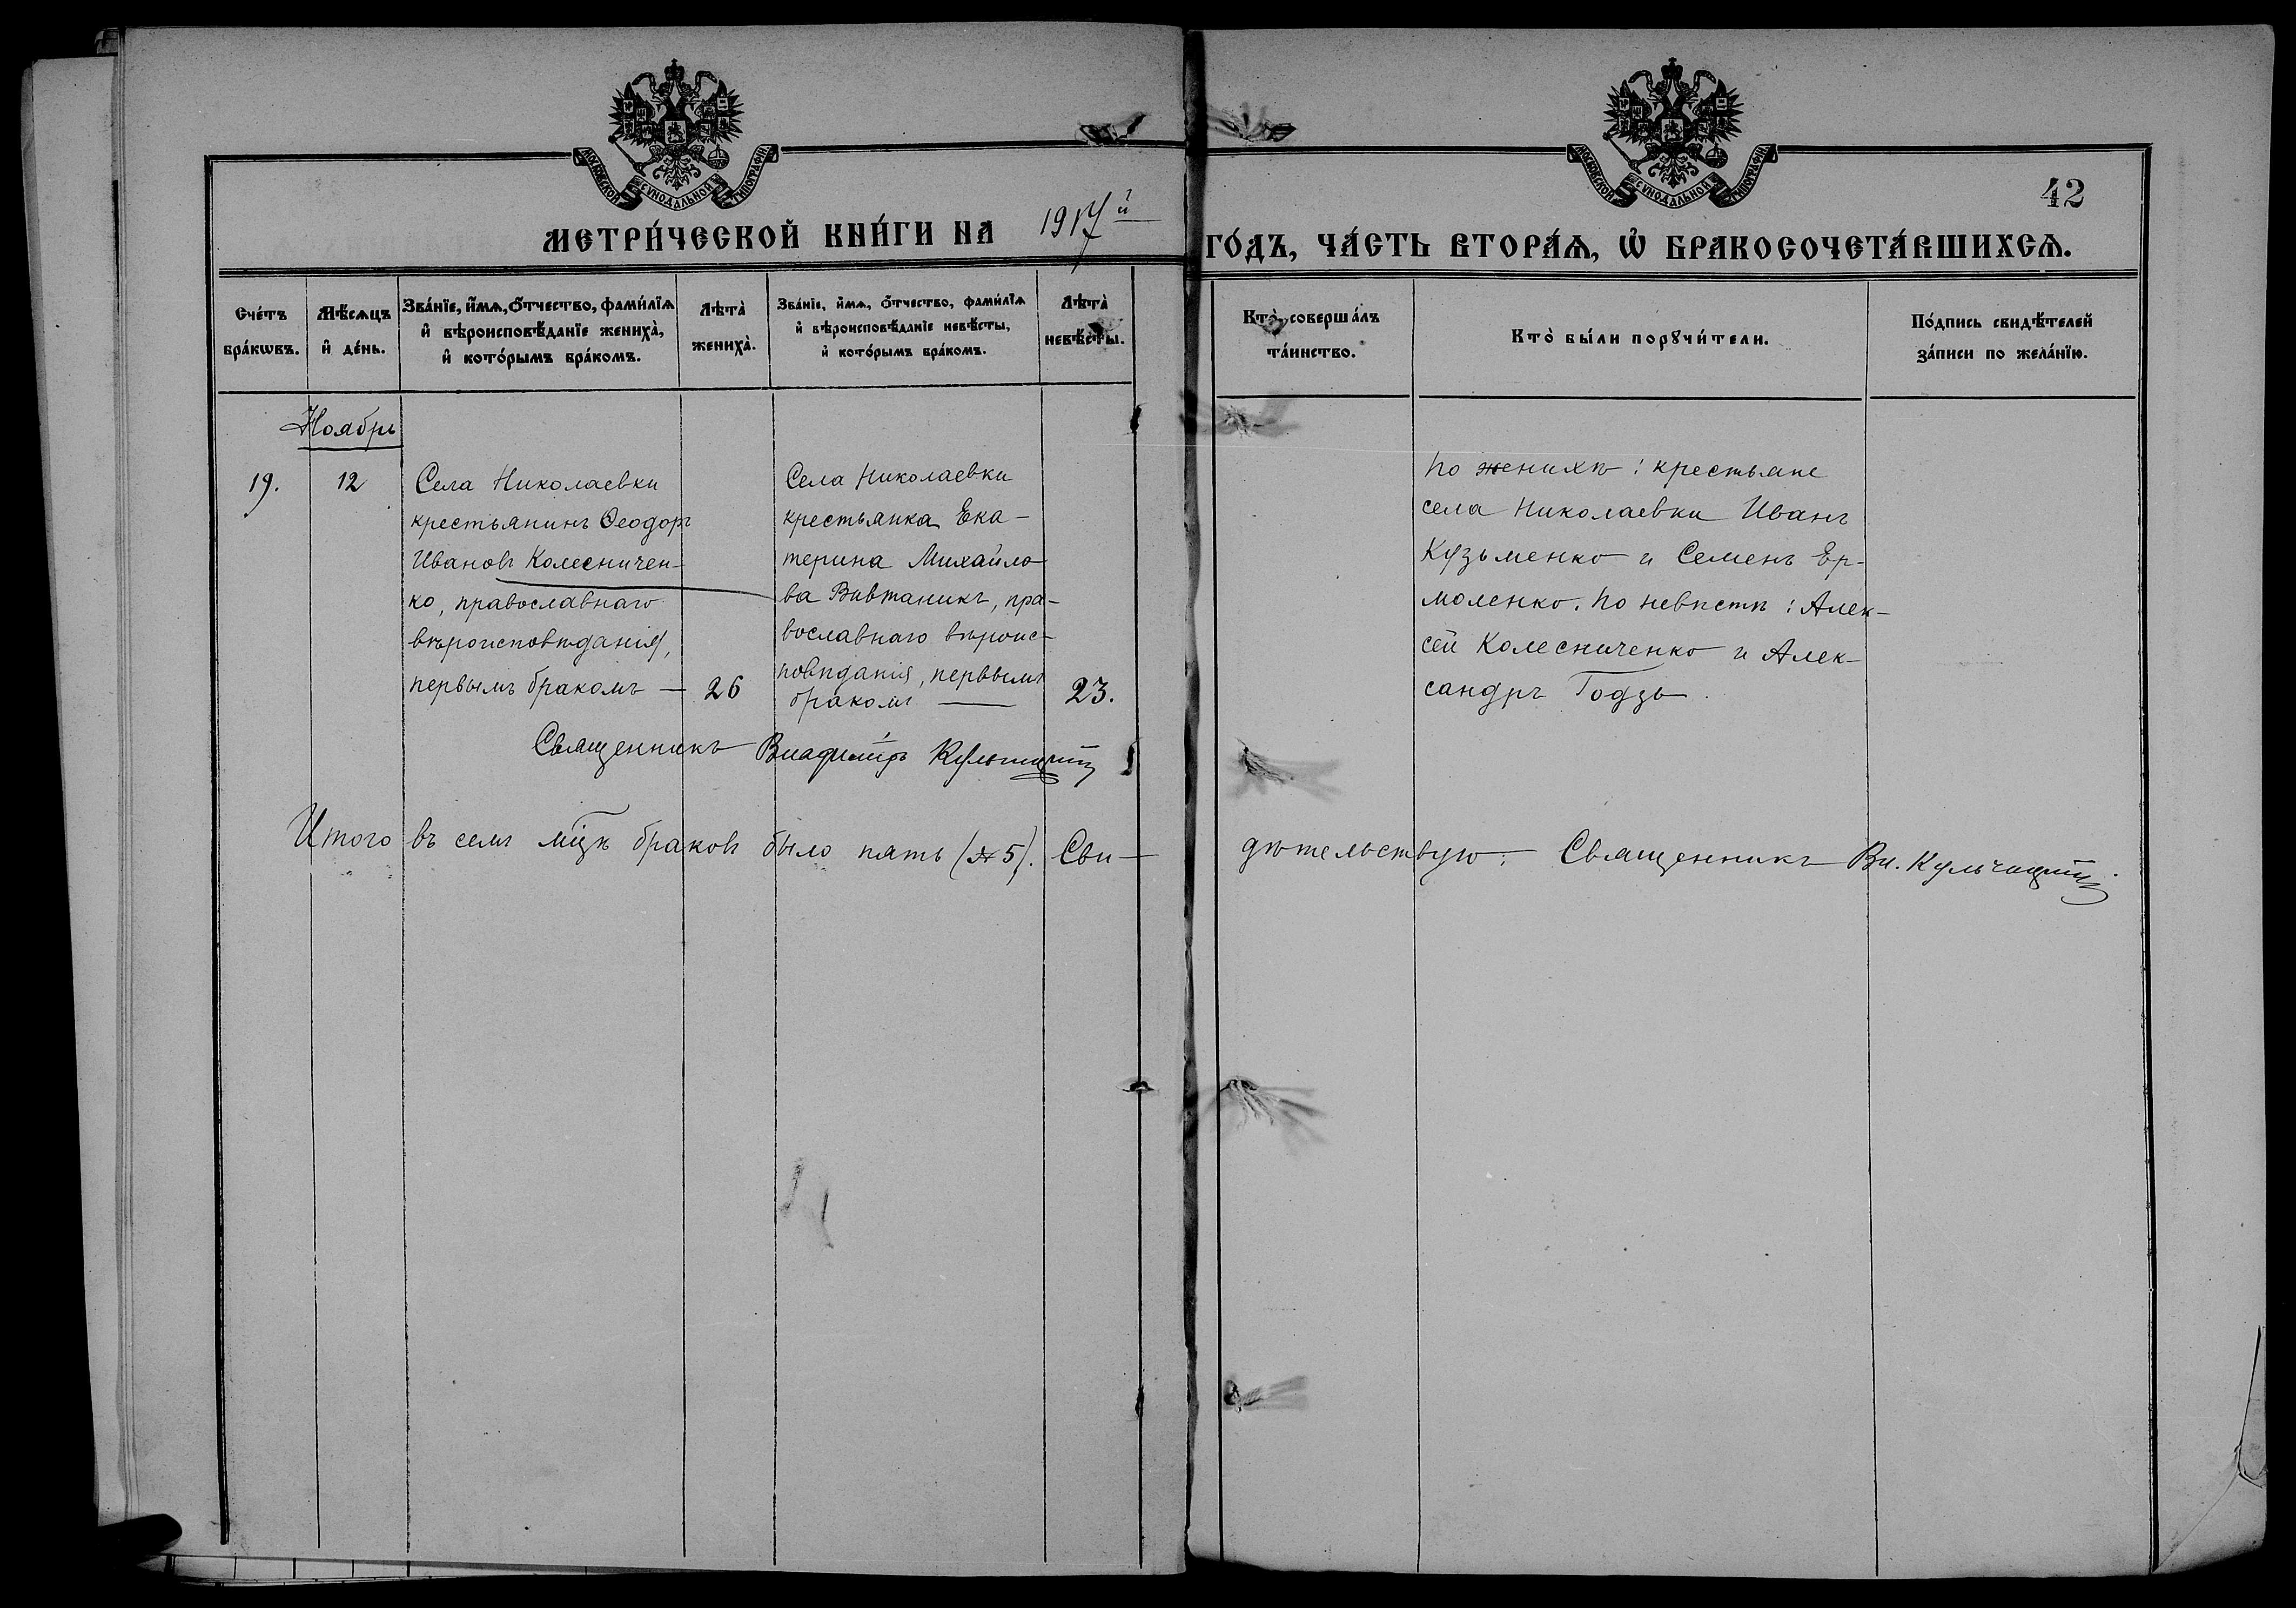 МОСКОВСКОЙ СΥНОДАЛЬНОЙ ТИПОГРАФІИ
МОСКОВСКОЙ СΥНОДАЛЬНОЙ ТИПОГРАФІИ
42
МЕТРИ́ЧЕСКОЙ КНИ́ГИ НА 1917й ГО́ДЪ, ЧА́СТЬ ВТОРА́Ѧ, Ѽ БРАКОСОЧЕТА́ВШИХСѦ.
Сче́тъ бра́кѡвъ.
Мѣ́сѧцъ и҆ де́нь.
Зва́нїе, и҆́мѧ, ѻ҆́тчество, фами́лїѧ
и҆ вѣроисповѣ́данїе жениха̀,
и҆ кото́рымъ бра́комъ.
Лѣта̀ жениха̀.
Зва́нїе, и҆́мѧ, ѻ҆́тчество, фами́лїѧ
и҆ вѣроисповѣ́данїе невѣ́сты,
и҆ кото́рымъ бра́комъ.
Лѣта̀ невѣ́сты.
Кто̀ соверша́лъ
та́инство.
Кто̀ бы́ли порꙋчи́тели.
По́дпись свидѣ́телей
за́писи по жела́нїю.
Ноябрь
19.
12
Села Николаевки
крестьянинъ Ѳеодоръ
Ивановъ Колесничен-
ко, православнаго
вѣроисповѣданія,
первымъ бракомъ —
26
Села Николаевки
крестьянка Ека-
терина Михайло-
ва Вивтаникъ, пра-
вославнаго вѣроис-
повѣданія, первымъ
бракомъ —
23.
По женихѣ: крестьяне
села Николаевки Иванъ
Кузьменко и Семенъ Ер-
моленко. По невѣстѣ: Алек-
сѣй Колесниченко и Алек-
сандръ Годзь.
Священникъ Владиміръ Кульчицкій
Итого въ семъ мцѣ браковъ было пять (№ 5). Сви-
дѣтельствую: Священникъ Вл. Кульчицкій.